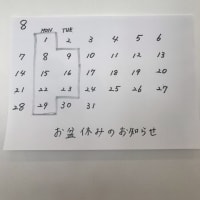 8
MON TUE
1 2 3 4 5 6
7 8 9 10 11 12 13
14 15 16 17 18 19 20
21 22 23 24 25 26 27
28 29 30 31
お盆休みのお知らせ